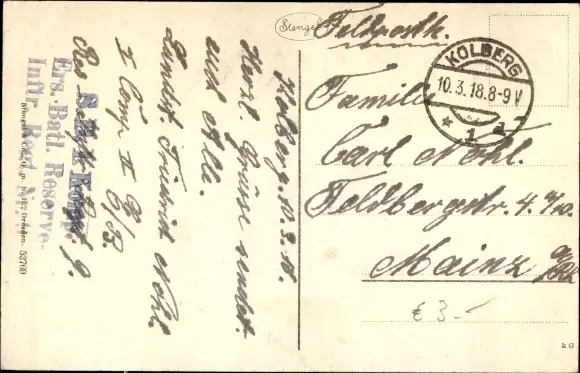 Stengel
Feldpostk.
KOLBERG
10.3.18.8-9V
* 1 a
Familie
Carl Nohl.
Feldbergstr. 4 4/10
Mainz a/Rh
€ 3.-
k G
Kolberg. 10.3.18.
Herzl. Grüsse sendet
euch Alle.
Landst. Friedrich Nohl
I Comp. II
Ers. Batl. Reserve-
Inftr. Regt. Nr. 9.
Dresden 52700